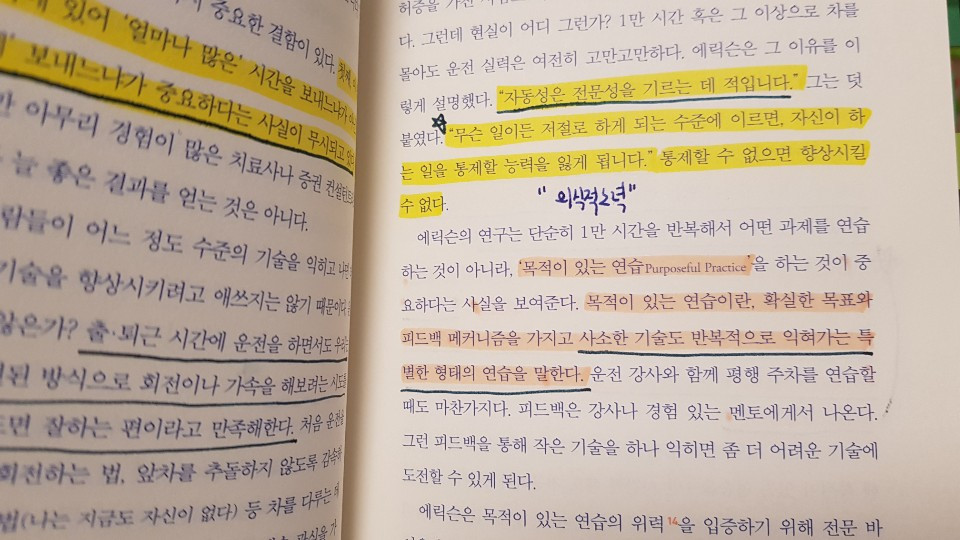 중요한 결함이 있다. 첫째,
있어 '얼마나 많은' 시간을 보내느냐가
보내느냐가 중요하다는 사실이 무시되고
아무리 경험이 많은 치료사나 증권 컨설턴트
늘 좋은 결과를 얻는 것은 아니다.
람들이 어느 정도 수준의 기술을 익히고 나면
기술을 향상시키려고 애쓰지는 않기 때문이다.
않은가? 출·퇴근 시간에 운전을 하면서도 우리는
된 방식으로 회전이나 가속을 해보려는 시도
면 잘하는 편이라고 만족해한다. 처음 운전을
회전하는 법, 앞차를 추돌하지 않도록 감속
법(나는 지금도 자신이 없다) 등 차를 다루는 데
다. 그런데 현실이 어디 그런가? 1만 시간 혹은 그 이상으로 차를
몰아도 운전 실력은 여전히 고만고만하다. 에릭슨은 그 이유를 이
렇게 설명했다. "자동성은 전문성을 기르는 데 적입니다." 그는 덧
붙였다. "무슨 일이든 저절로 하게 되는 수준에 이르면, 자신이 하
는 일을 통제할 능력을 잃게 됩니다." 통제할 수 없으면 향상시킬
수 없다.
"의식적 노력"
에릭슨의 연구는 단순히 1만 시간을 반복해서 어떤 과제를 연습
하는 것이 아니라, '목적이 있는 연습Purposeful Practice'을 하는 것이 중
요하다는 사실을 보여준다. 목적이 있는 연습이란, 확실한 목표와
피드백 메커니즘을 가지고 사소한 기술도 반복적으로 익혀가는 특
별한 형태의 연습을 말한다. 운전 강사와 함께 평행 주차를 연습할
때도 마찬가지다. 피드백은 강사나 경험 있는 멘토에게서 나온다.
그런 피드백을 통해 작은 기술을 하나 익히면 좀 더 어려운 기술에
도전할 수 있게 된다.
에릭슨은 목적이 있는 연습의 위력14을 입증하기 위해 전문 바